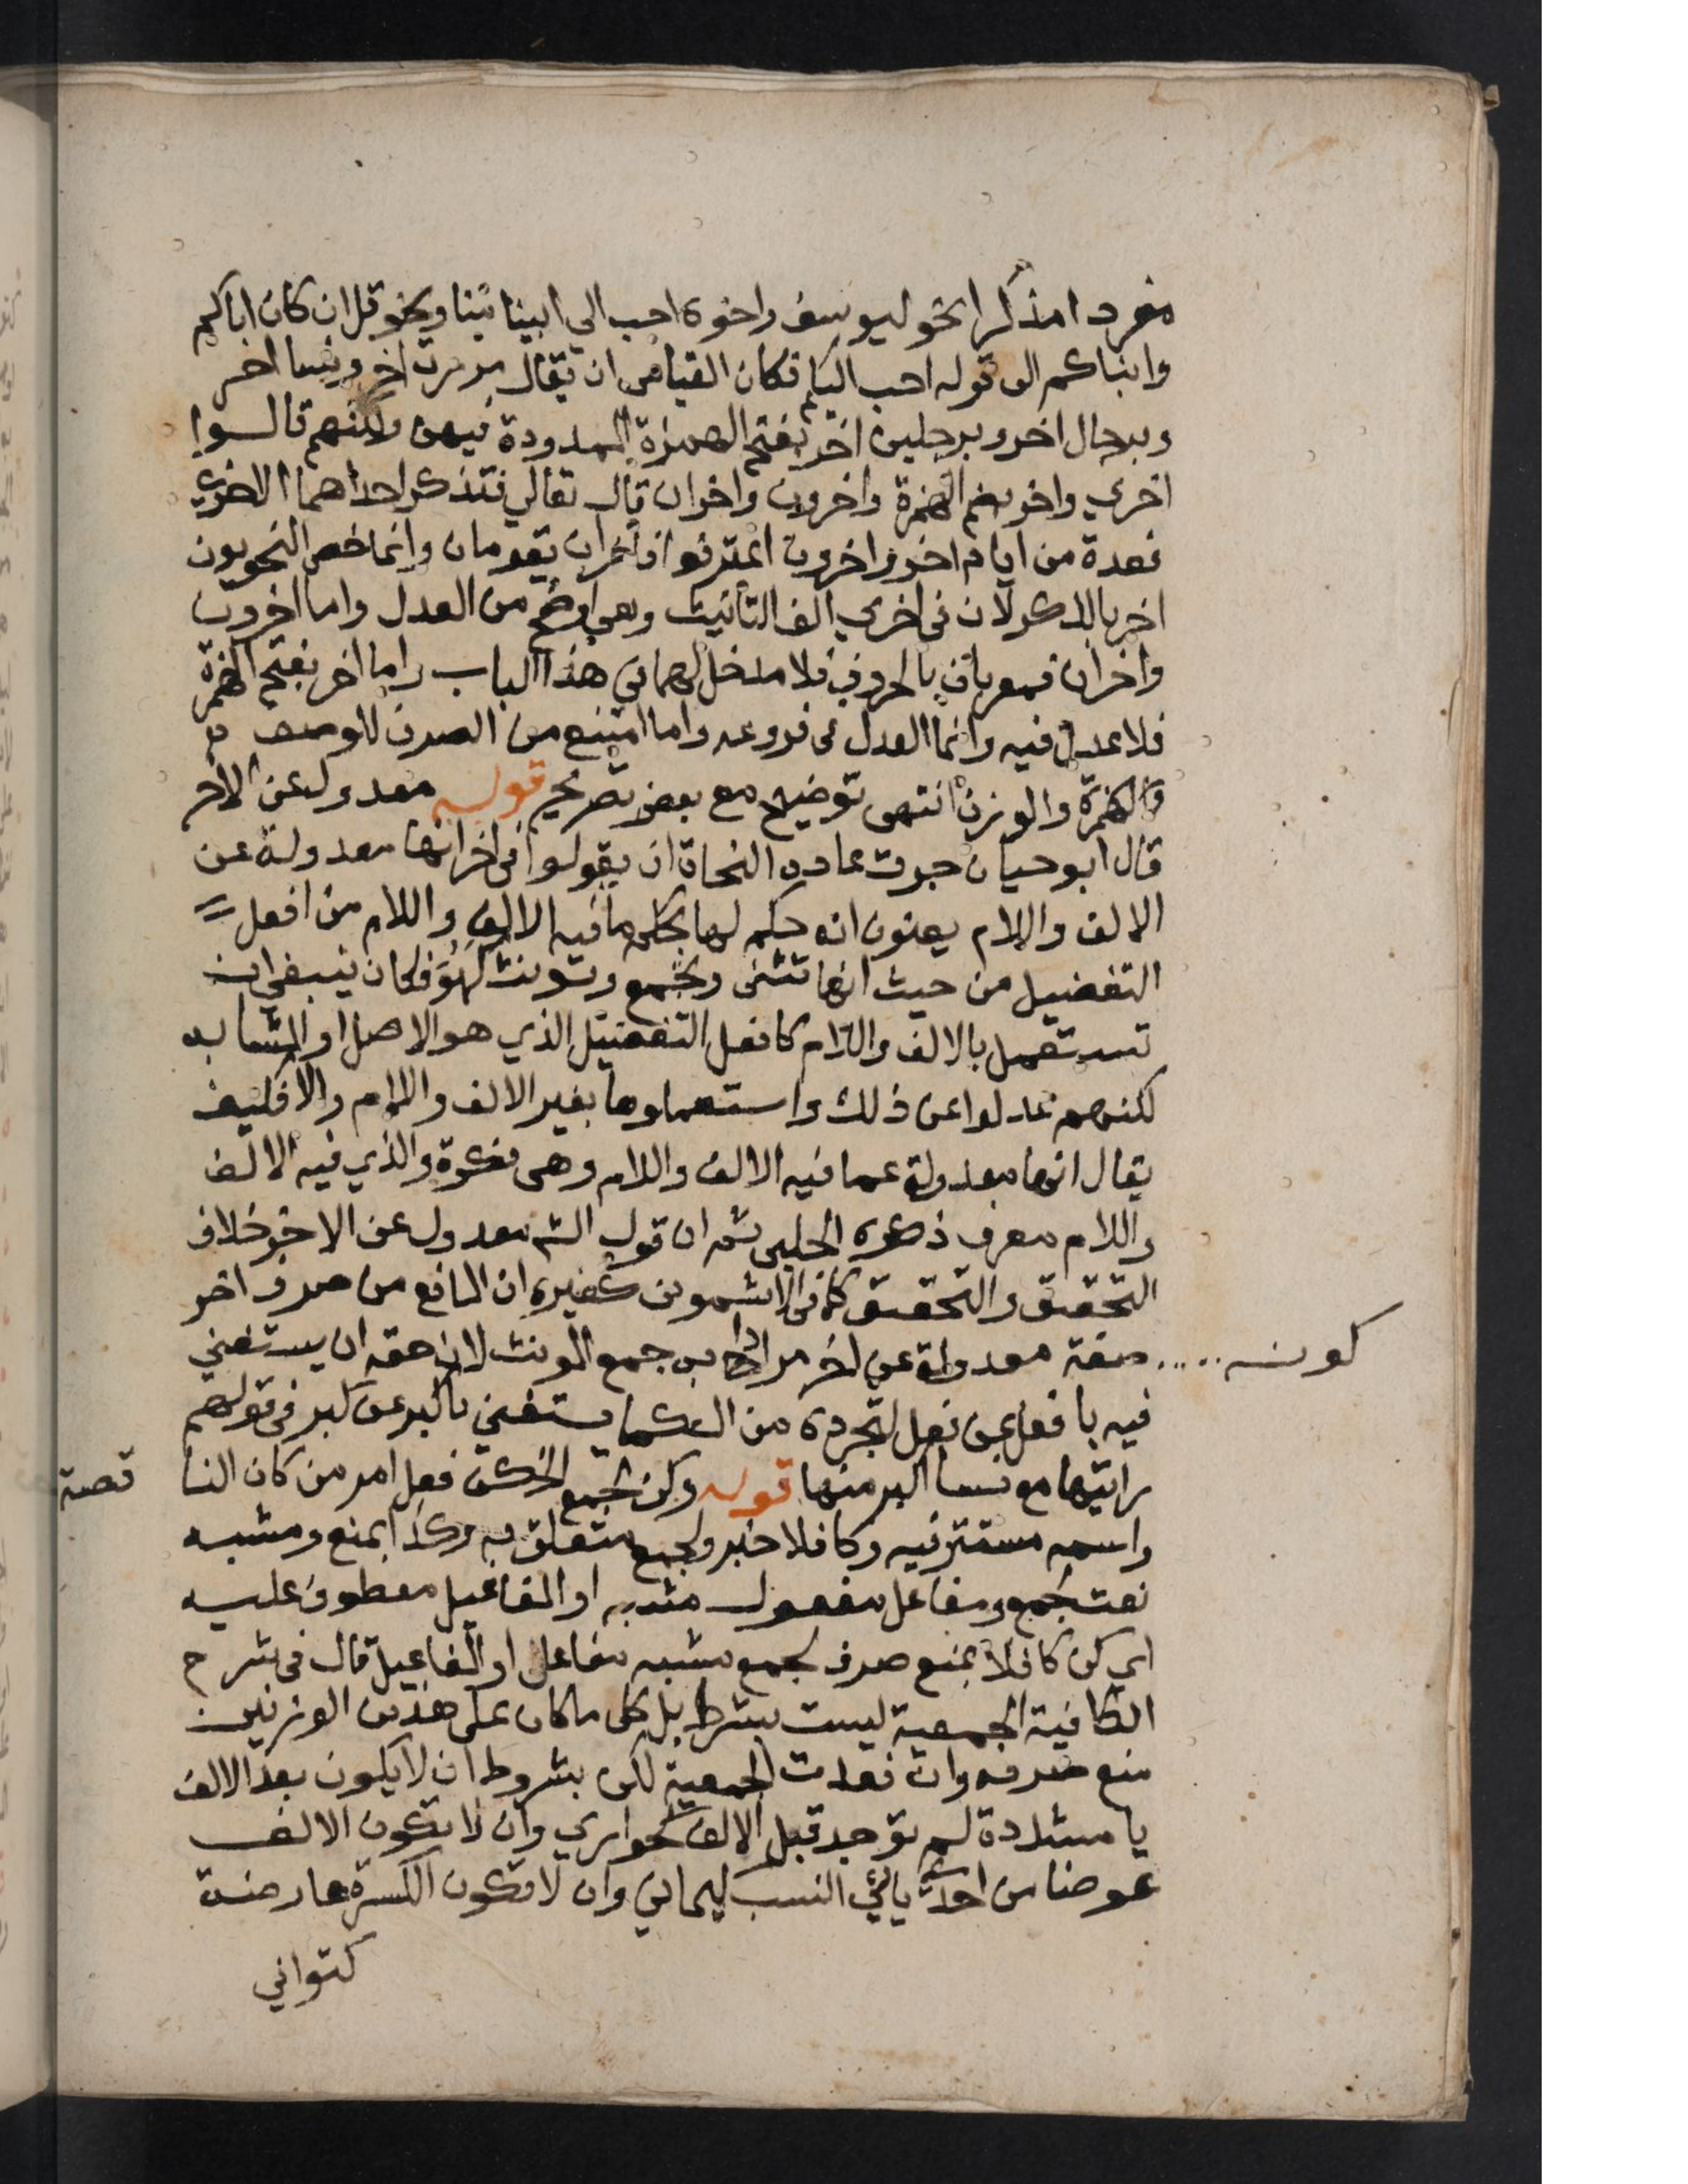 مفردا مذكرا نحو ليوسف واخوه احب الي ابينا منا ونحو قل ان كان اباكم
وابناكم الى قوله احب اليكم فكان القياس ان يقال مررت اخر ونسا اخر
وبرجال اخر وبرجلين اخر بفتح الهمزة الممدودة فيهن ولكنهم قالوا
اخري واخر بضم الهمزة واخرون واخران قال تعالي فتذكر احداهما الاخري
فعدة من ايام اخر واخرون اعترفوا فاخران يقومان وانما خص النحويون
اخر بالذكر لان في اخري الف التأنيث وهي اوضح من العدل واما اخرون
واخران فمعربان بالحروف فلا مدخل لهما في هذا الباب واما اخر بفتح الهمزة
فلا عدل فيه وانما العدل في فروعه واما امتنع من الصرف للوصف
والوزن انتهى توضيح مع بعض تصريح قوله معدول عن الاخر
قال ابو حيان جرت عاده النحاة ان يقولوا في اخر انها معدولة عن
الالف واللام يعنون انه حكم لها بحكم ما فيه الالف واللام من افعل
التفضيل من حيث انها تثنى وتجمع وتونث فكان ينبغي ان
تستعمل بالالف واللام كافعل التفضيل الذي هو الاصل او المشابه
لكنهم عدلوا عن ذلك واستعملوها بغير الالف واللام والا فكيف
يقال انها معدولة عما فيه الالف واللام وهي نكرة والذي فيه الالف
واللام معرف ذكره الحلبى ثم ان قول الش معدول عن الاخر خلاف
التحقيق والتحقيق كما في الاشموني كغيره ان المانع من صرف اخر
كونه صفة معدولة عن اخر مرادا به جمع المونث لان حقه ان يستغني
فيه بافعل عن فعل لتجرده من ال كما يستغني باكبر عن كبر في قولهم
رايتها مع نسا اكبر منها قوله وكن لجمع الخ كن فعل امر من كان الناقصة
واسمه مستتر فيه وكافلا خبر ولجمع متعلق به وكذا بمنع ومشبه
نعت لجمع ومفاعل مفعول مشبه او المفاعيل معطوف عليه
اي كن كافلا بمنع صرف لجمع مشبه مفاعل او المفاعيل قال في شرح
الكافية الجمعية ليست بشرط بل كل ما كان على هذين الوزنين
منع صرفه وان فقدت الجمعية لكن بشروط ان لا يكون بعد الالف
يا مشددة لم توجد قبل الالف كحواري وان لا تكون الالف
عوضا من احدى يائي النسب كيماني وان لا تكون الكسرة عارضة
كتواني